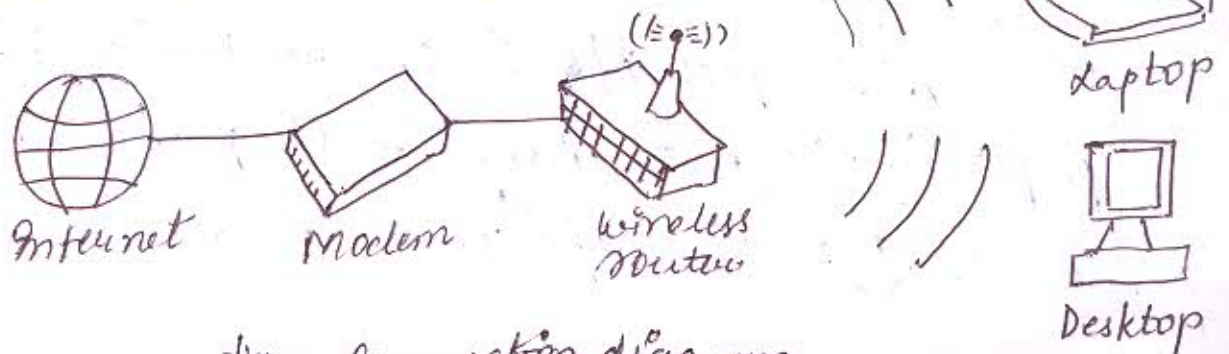 Laptop
Internet
Modem
wireless
router
Desktop
diagram